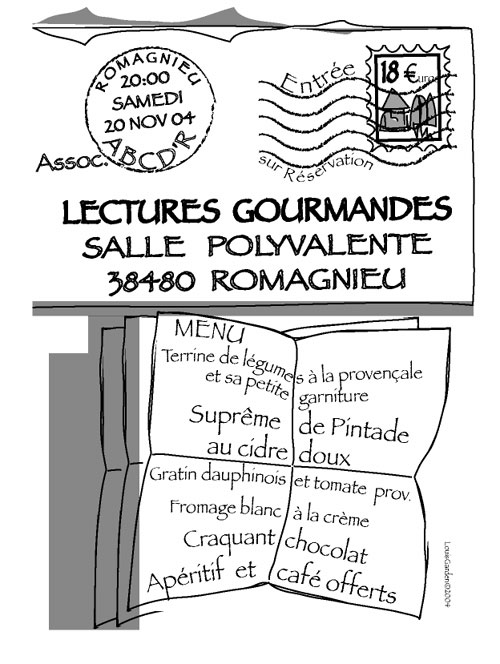 ROMAGNIEU
20:00
SAMEDI
20 NOV 04
Assoc. ABCD'R
Entrée
18 € Euros
sur Réservation
LECTURES GOURMANDES
SALLE POLYVALENTE
38480 ROMAGNIEU
MENU
Terrine de légumes à la provençale
et sa petite garniture
Suprême de Pintade
au cidre doux
Gratin dauphinois et tomate prov.
Fromage blanc à la crème
Craquant chocolat
Apéritif et café offerts